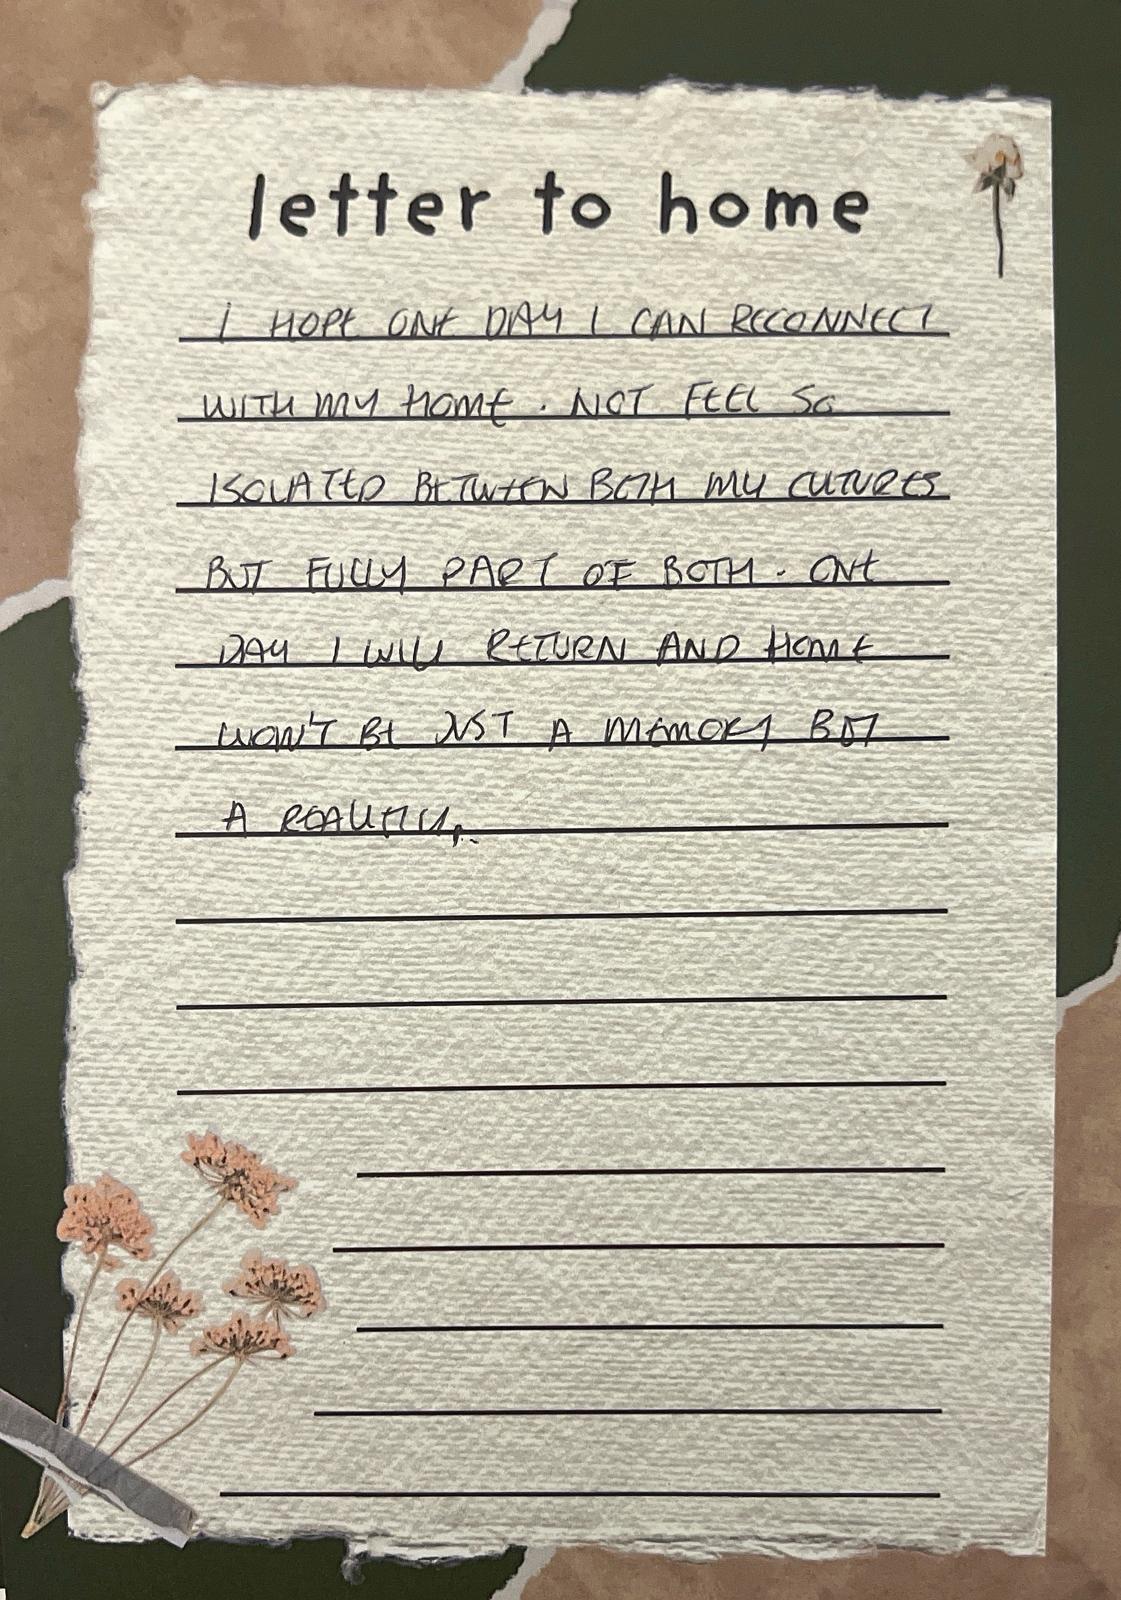 letter to home
I HOPE ONE DAY I CAN RECONNECT
WITH MY HOME. NOT FEEL SO
ISOLATED BETWEEN BOTH MY CULTURES
BUT FULLY PART OF BOTH. ONE
DAY I WILL RETURN AND HOME
WON'T BE JUST A MEMORY BUT
A REALITY.